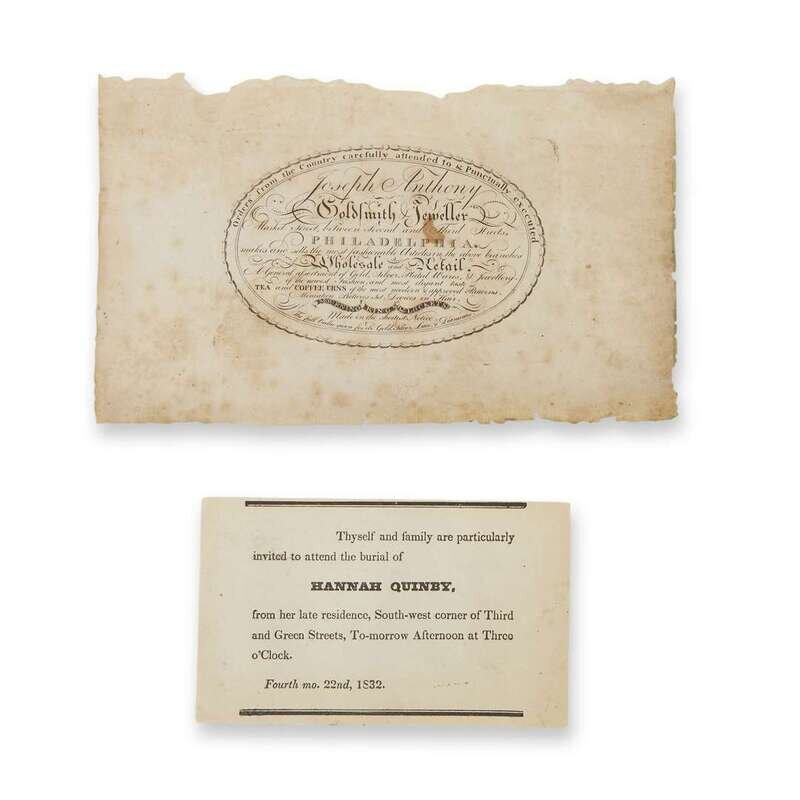 Orders from the Country carefully attended to & Punctually executed
Joseph Anthony
Goldsmith & Jeweller
Market Street, between Second and Third Streets,
PHILADELPHIA.
makes and sells the most fashionable Articles in the above branches
Wholesale and Retail.
A General assortment of Gold, Silver, Plated Wares, & Jewellery
of the newest Fashion and most elegant taste
TEA and COFFEE URNS of the most modern & approved Patterns.
Devices in Hair,
MOURNING RINGS & LOCKETS
Made on the shortest Notice
The full Value given for old Gold, Silver, Lace, & Diamonds
Thyself and family are particularly
invited to attend the burial of
HANNAH QUINBY,
from her late residence, South-west corner of Third
and Green Streets, To-morrow Afternoon at Three
o'Clock.
Fourth mo. 22nd, 1832.